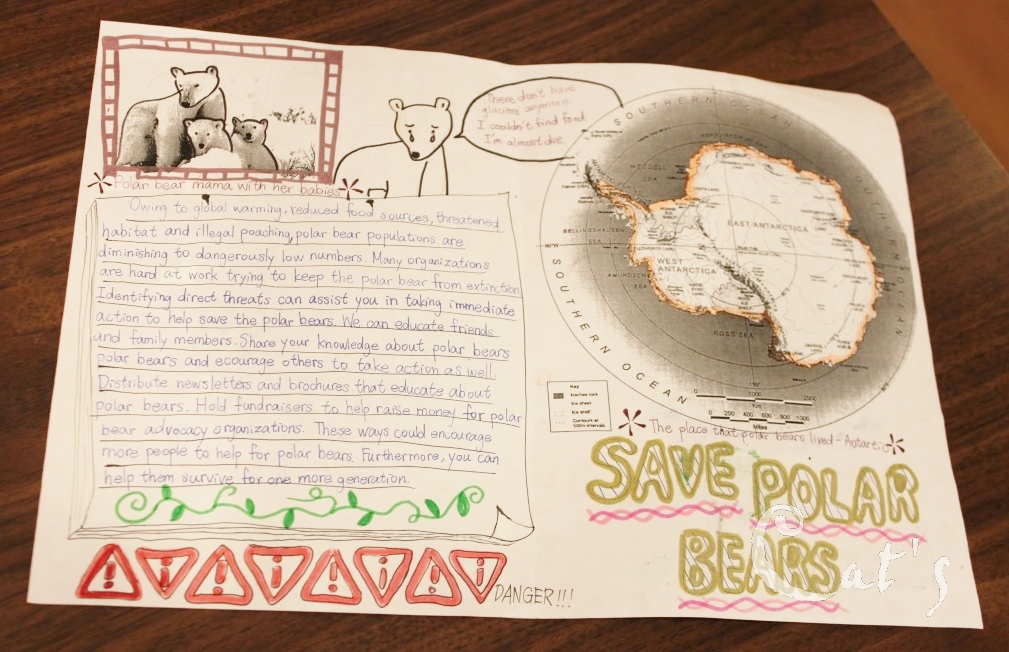 Polar bear mama with her babies
There don't have
glaciers anymore.
I couldn't find food
I'm almost die.
Owing to global warming, reduced food sources, threatened
habitat and illegal poaching, polar bear populations are
diminishing to dangerously low numbers. Many organizations
are hard at work trying to keep the polar bear from extinction
Identifying direct threats can assist you in taking immediate
action to help save the polar bears. We can educate friends
and family members. Share your knowledge about polar bears
polar bears and ecourage others to take action as well.
Distribute newsletters and brochures that educate about
polar bears. Hold fundraisers to help raise money for polar
bear advocacy organizations. These ways could encourage
more people to help for polar bears. Furthermore, you can
help them survive for one more generation.
DANGER!!!
SOUTHERN OCEAN
WEDDELL
SEA
EAST ANTARCTICA
BELLINGSHAUSEN
SEA
WEST
ANTARCTICA
AMUNDSEN
SEA
ROSS SEA
SOUTHERN OCEAN
SOUTHERN OCEAN
Key
Ice-free rock
Ice sheet
Ice shelf
Contours at
500m intervals
0 1000 2500
Km
0 200 400 600 800 1000
Miles
The place that polar bears lived - Antartic
SAVE POLAR
BEARS
©at's